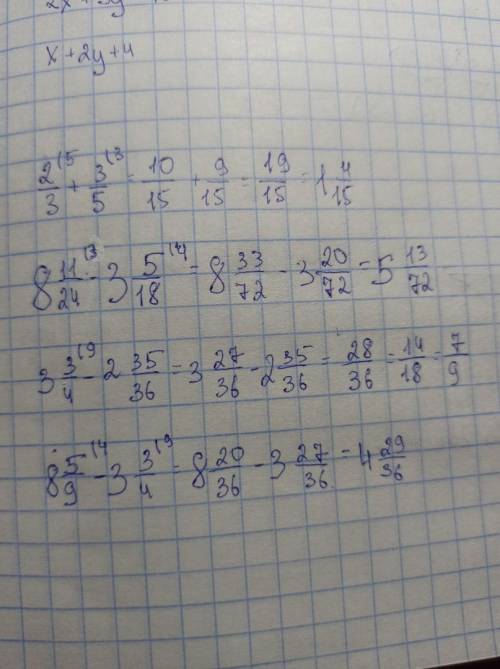 x+2y+4
2/3 (5 + 3/5 (3 = 10/15 + 9/15 = 19/15 = 1 4/15
8 11/24 (3 - 3 5/18 (4 = 8 33/72 - 3 20/72 = 5 13/72
3 3/4 (9 - 2 35/36 = 3 27/36 - 2 35/36 = 28/36 = 14/18 = 7/9
8 5/9 (4 - 3 3/4 (9 = 8 20/36 - 3 27/36 = 4 29/36